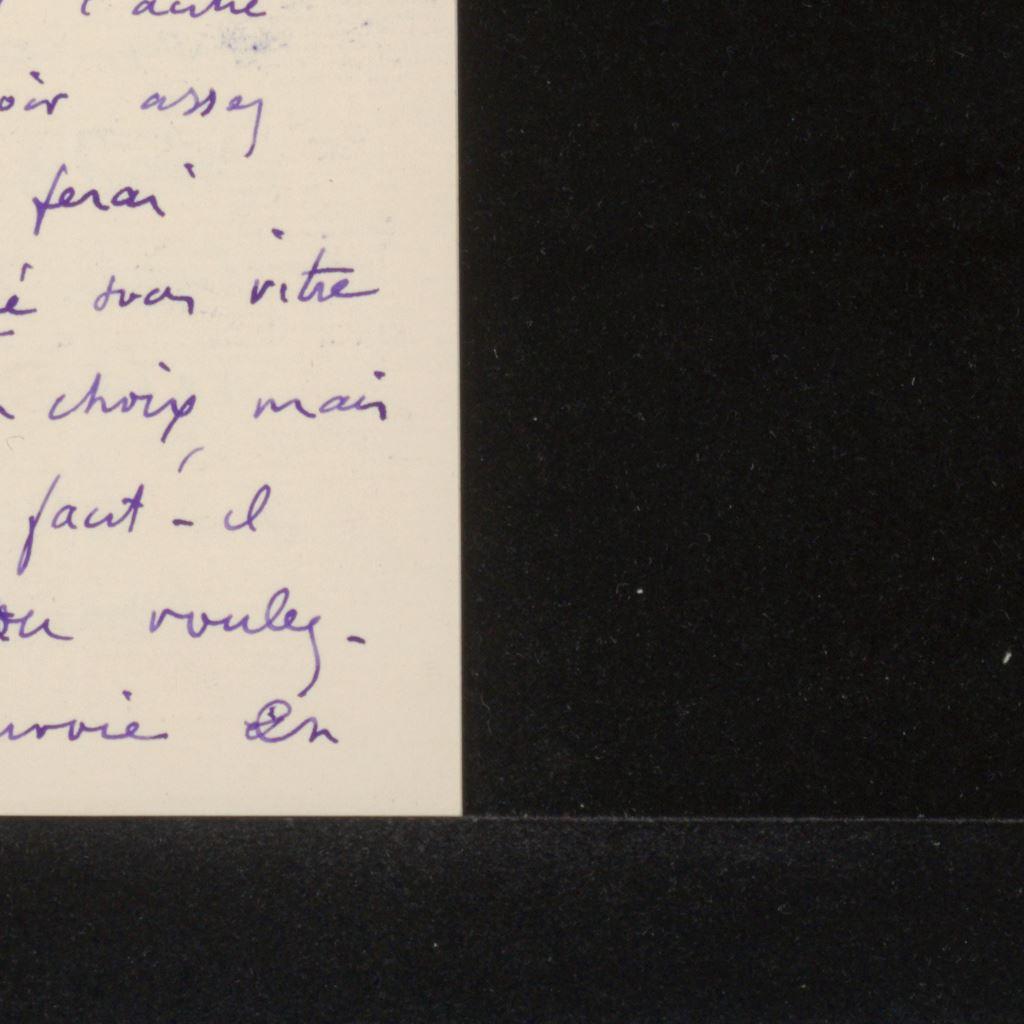 l'autre
oir assez
ferai
é sous vitre
choix mais
faut-il
ou voulez-
nvoie en